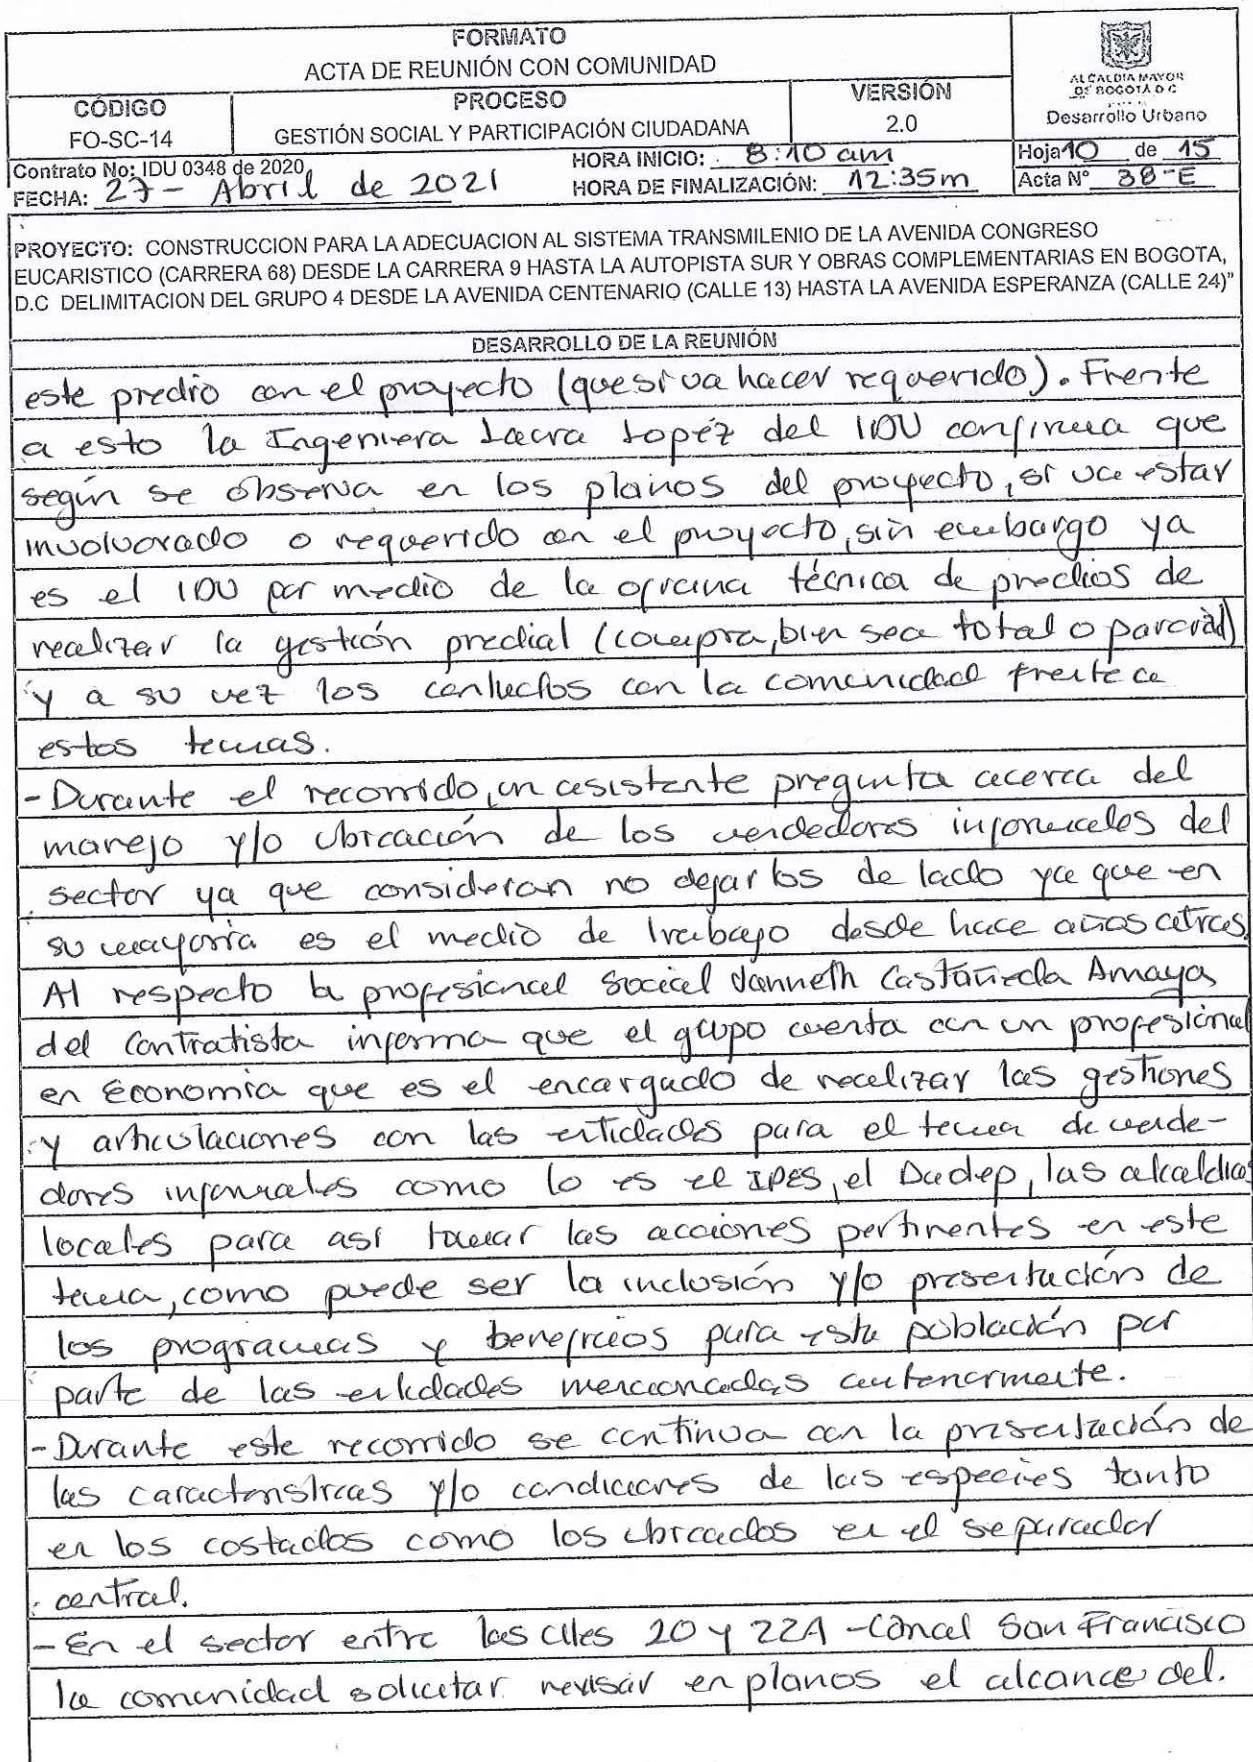 FORMATO
ACTA DE REUNIÓN CON COMUNIDAD
ALCALDIA MAYOR
DE BOGOTÁ D C
Desarrollo Urbano
CÓDIGO
FO-SC-14
PROCESO
GESTIÓN SOCIAL Y PARTICIPACIÓN CIUDADANA
VERSIÓN
2.0
Contrato No: IDU 0348 de 2020
FECHA: 27 - Abril de 2021
HORA INICIO: 8:10 am
HORA DE FINALIZACIÓN: 12:35m
Hoja 10 de 15
Acta N° 38-E
PROYECTO: CONSTRUCCION PARA LA ADECUACION AL SISTEMA TRANSMILENIO DE LA AVENIDA CONGRESO
EUCARISTICO (CARRERA 68) DESDE LA CARRERA 9 HASTA LA AUTOPISTA SUR Y OBRAS COMPLEMENTARIAS EN BOGOTA,
D.C DELIMITACION DEL GRUPO 4 DESDE LA AVENIDA CENTENARIO (CALLE 13) HASTA LA AVENIDA ESPERANZA (CALLE 24)"
DESARROLLO DE LA REUNIÓN
este predio con el proyecto (que si va hacer requerido). Frente
a esto la Ingeniera Laura Lopéz del IDU confirma que
según se observa en los planos del proyecto, si va estar
involucrado o requerido con el proyecto, sin embargo ya
es el IDU por medio de la oficina técnica de predios de
realizar la gestión predial (compra, bien sea total o parcial)
y a su vez los contactos con la comunidad frente a
estos temas.
- Durante el recorrido, un asistente pregunta acerca del
manejo y/o ubicación de los vendedores informales del
sector ya que consideran no dejarlos de lado ya que en
su mayoria es el medio de trabajo desde hace años atras.
Al respecto la profesional social Janneth Castañeda Amaya
del contratista informa que el grupo cuenta con un profesional
en Economia que es el encargado de realizar las gestiones
y articulaciones con las entidades para el tema de vende-
dores informales como lo es el IPES, el Dadep, las alcaldias
locales para asi tomar las acciones pertinentes en este
tema, como puede ser la inclusión y/o presentación de
los programas y beneficios para esta población por
parte de las entidades mencionadas anteriormente.
- Durante este recorrido se continua con la presentación de
las caracteristicas y/o condiciones de las especies tanto
en los costados como los ubicados en el separador
central.
- En el sector entre las Clles 20 y 22A - Canal San Francisco
la comunidad solicitar revisar en planos el alcance del.